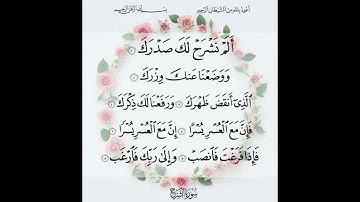 أعوذ بالله من الشيطان الرجيم
بسم الله الرحمن الرحيم
أَلَمْ نَشْرَحْ لَكَ صَدْرَكَ ۝
وَوَضَعْنَا عَنكَ وِزْرَكَ
ٱلَّذِىٓ أَنقَضَ ظَهْرَكَ ۝ وَرَفَعْنَا لَكَ ذِكْرَكَ ۝
فَإِنَّ مَعَ ٱلْعُسْرِ يُسْرًا ۝ إِنَّ مَعَ ٱلْعُسْرِ يُسْرًا ۝
فَإِذَا فَرَغْتَ فَٱنصَبْ ۝ وَإِلَىٰ رَبِّكَ فَٱرْغَب ۝
سورة الشرح